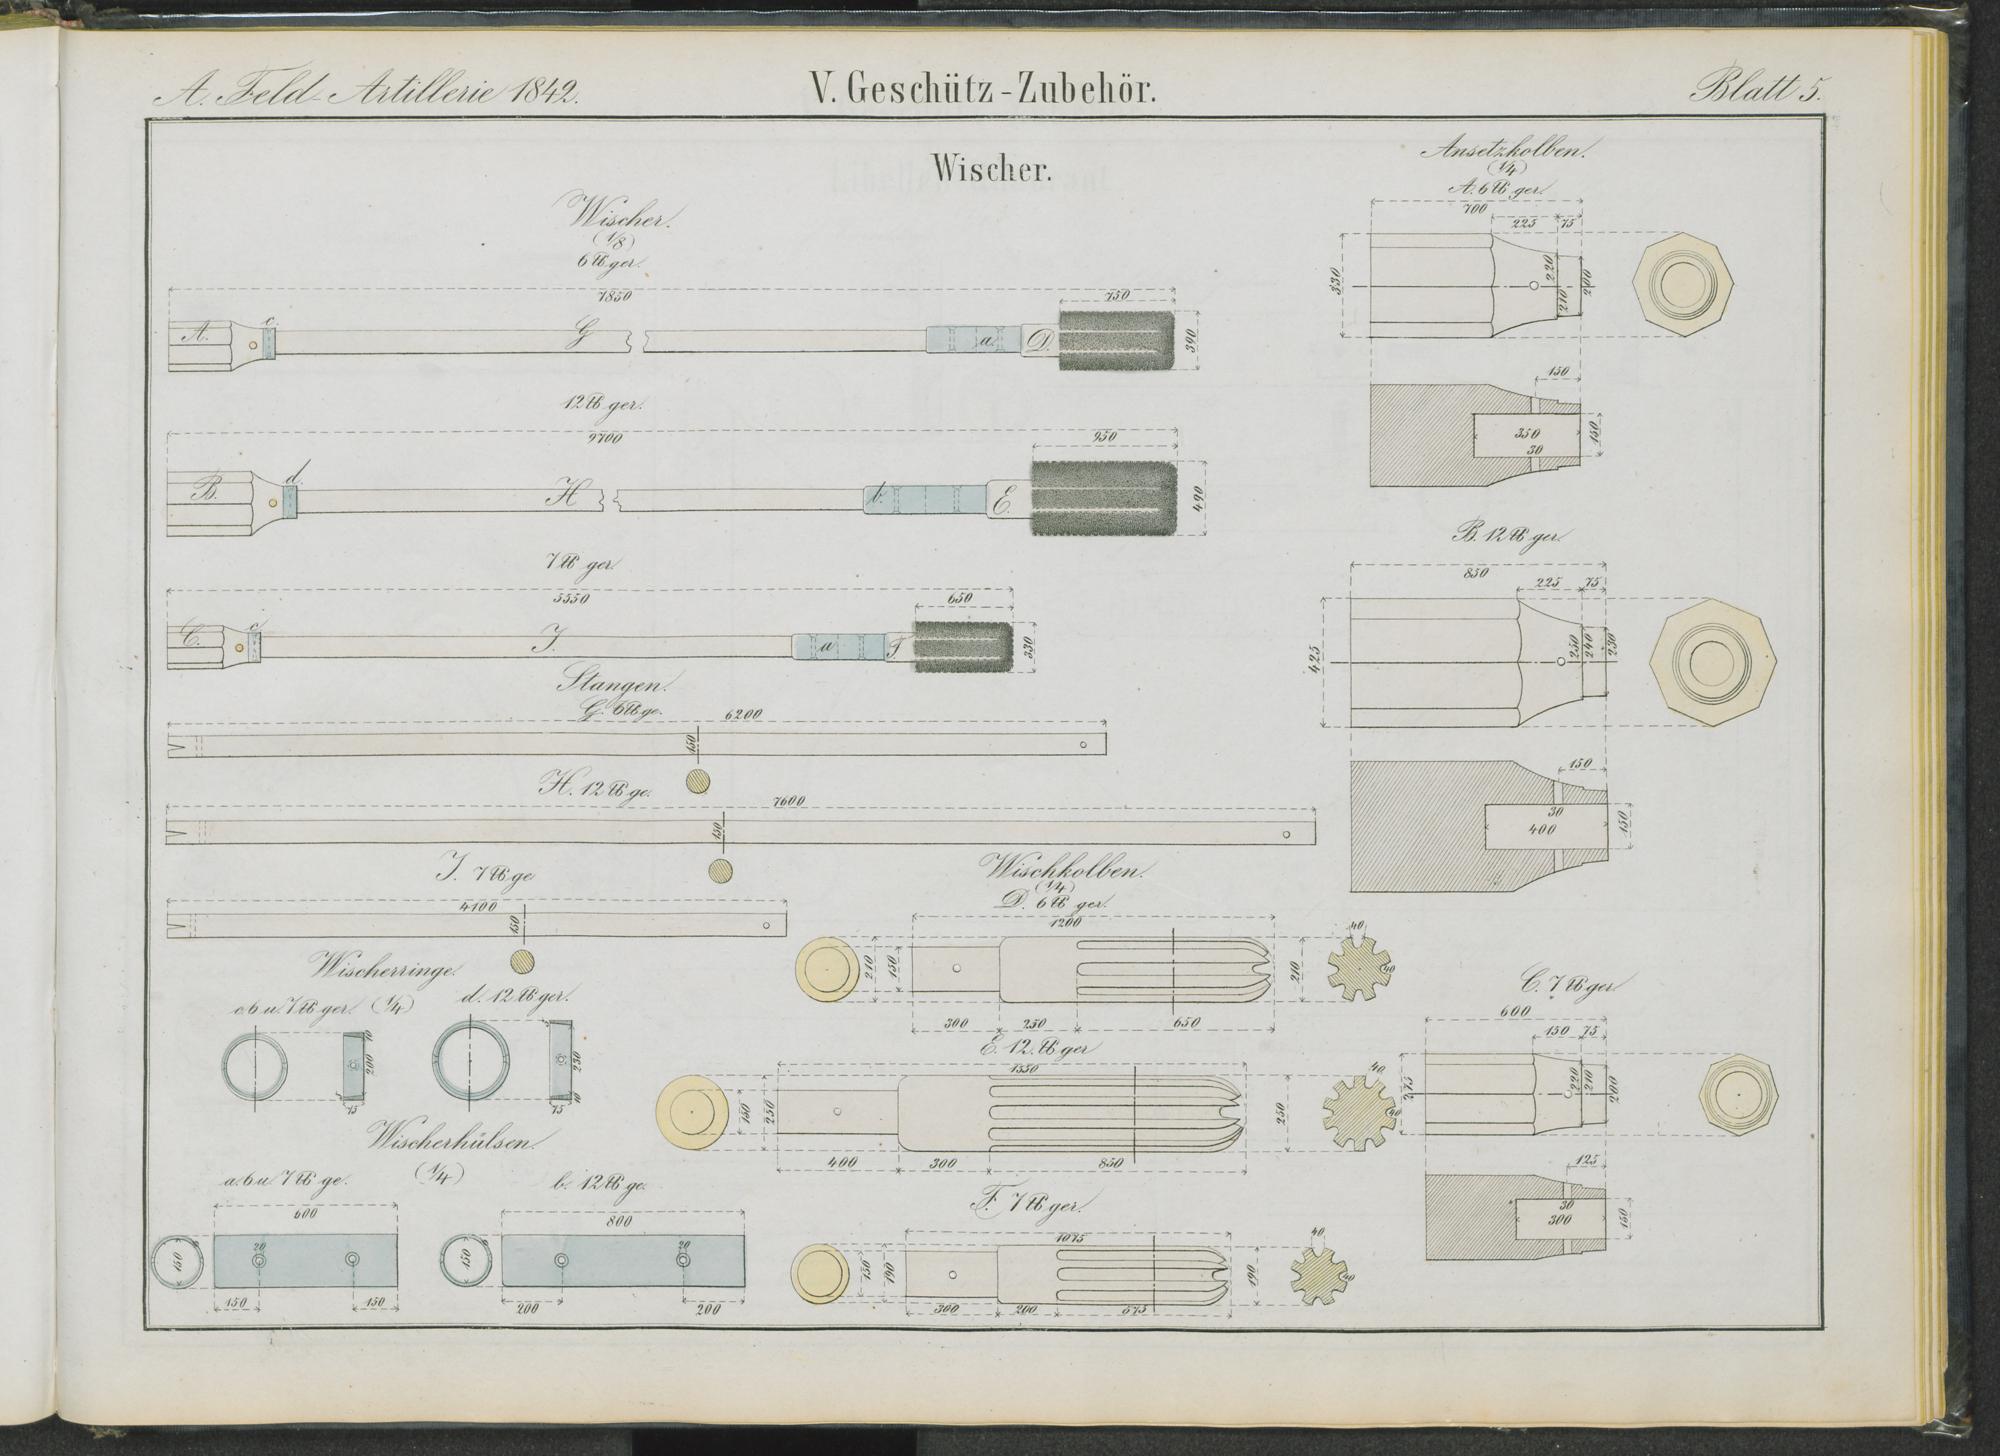 A. Feld-Artillerie 1842.
V. Geschütz-Zubehör.
Blatt 5.
Wischer.
Wischer.
(1/8)
6 ℔ ger.
7850
750
A.
c.
G
a.
D.
390
12 ℔ ger.
9700
950
B.
d.
H
b.
E.
490
7 ℔ ger.
5550
650
C.
c
J.
a
F
330
Stangen.
G. 6 ℔ ge.
6200
150
H. 12 ℔ ge.
7600
150
J. 7 ℔ ge
4100
150
Wischerringe.
c. 6 u. 7 ℔ ger. (1/4)
d. 12 ℔ ger.
10
200
75
230
75
10
Wischerhülsen.
(1/4)
a. 6 u. 7 ℔ ge.
600
150
20
150
150
b. 12 ℔ ge.
800
150
20
200
200
Wischkolben.
(1/4)
D. 6 ℔ ger.
1200
210
150
210
40
40
300
250
650
E. 12. ℔ ger
1550
150
250
250
40
40
400
300
850
F. 7 ℔ ger.
1075
150
190
190
40
40
300
200
575
Ansetzkolben.
(1/4)
A. 6 ℔ ger.
700
225
75
330
220
210
200
150
350
30
150
B. 12 ℔ ger.
850
225
75
425
250
240
230
150
30
400
150
C. 7 ℔ ger
600
150
75
275
220
210
200
125
30
300
150